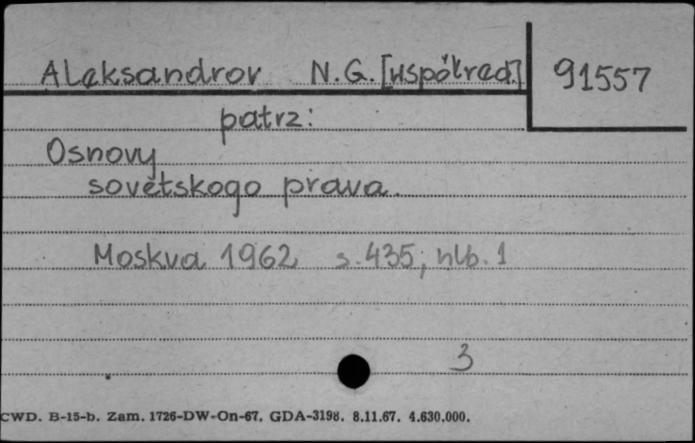 Aleksandrov N.G. [współred.] 91557
patrz:
Osnovy
sovetskogo prava.
Moskva 1962 s. 435, nlb. 1
3
CWD. B-15-b. Zam. 1726-DW-On-67. GDA-3198. 8.11.67. 4.630.000.